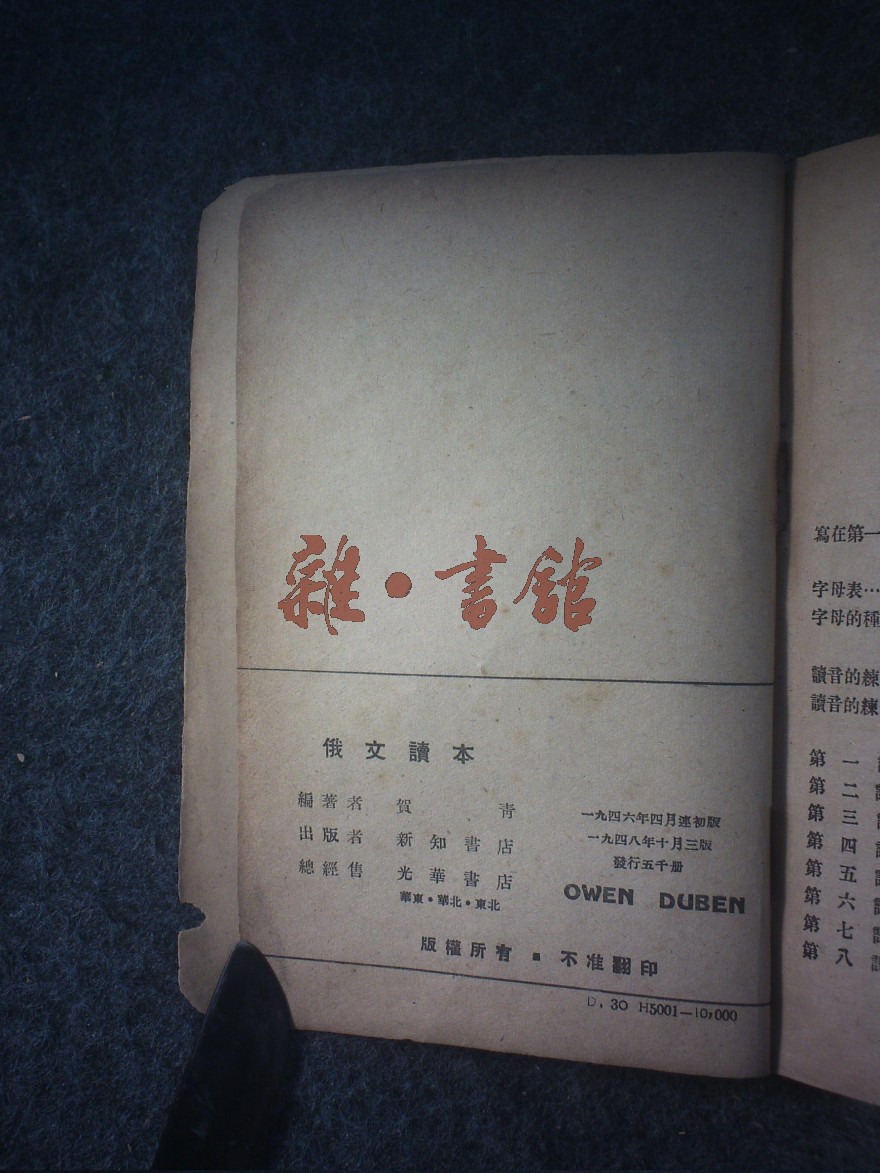 雜·書館
俄文讀本
編著者 賀青
出版者 新知書店
總經售 光華書店
華東·華北·東北
一九四六年四月連初版
一九四八年十月三版
發行五千册
OWEN DUBEN
版權所有 ▪ 不准翻印
D. 30 H5001—10,000
寫在第一
字母表…
字母的種
讀音的練
讀音的練
第一
第二
第三
第四
第五
第六
第七
第八